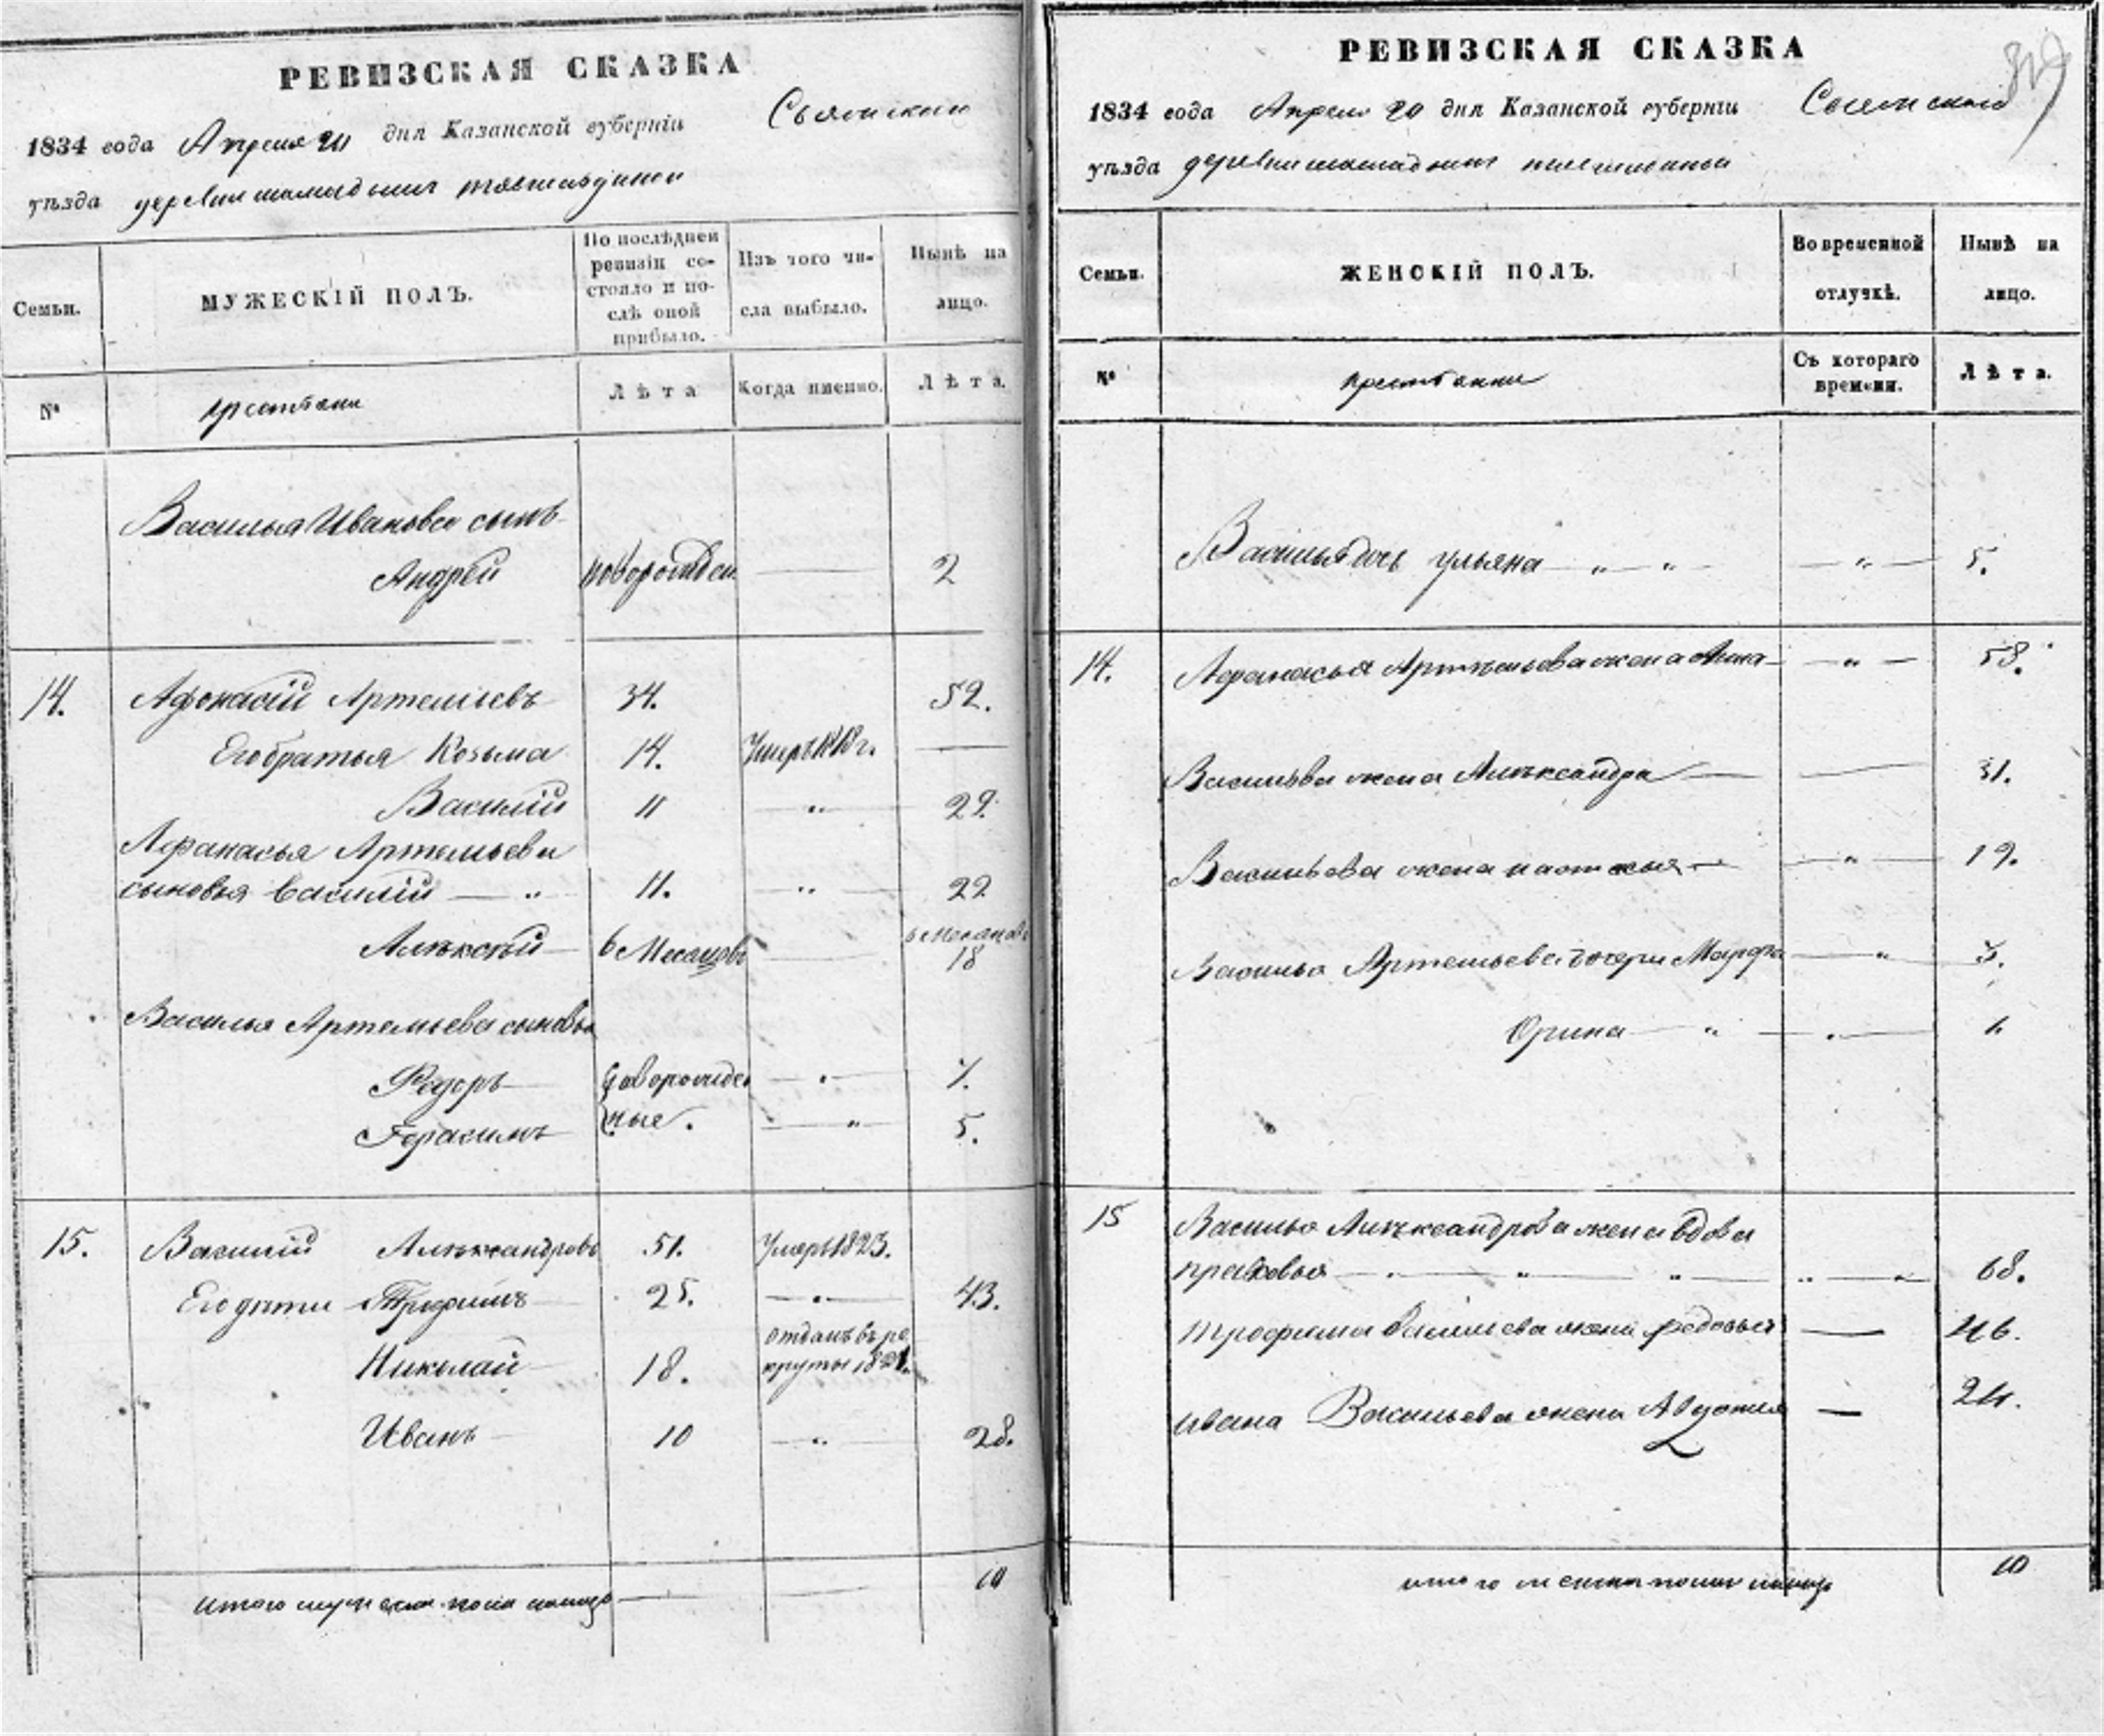 РЕВИЗСКАЯ СКАЗКА
1834 года Апреля 20 дня Казанской губерніи
уѣзда деревни
Семьи.
МУЖЕСКІЙ ПОЛЪ.
По послѣдней ревизіи состояло и послѣ оной прибыло.
Изъ того числа выбыло.
Нынѣ на лицо.
№
крестьяне
Лѣта
Когда именно.
Лѣта.
Василья Иванова сынъ
Андрей новорожден 2
14. Афонасій Артемьевъ 34. 52.
Его братья Козьма 14. Умеръ 1818 г.
Василій 11 „ 29.
Афанасья Артемьева
сыновья Василій „ 11. „ 29
Алѣксѣй 6 Месацовъ 6 месацовъ 18
Василья Артемьева сыновья
Федоръ новорожден
Герасимъ ные. „ 5.
15. Василій Алѣксандровъ 51. Умеръ 1823.
Его дѣти Трофимъ 25. „ 43.
отданъ въ ре
Николай 18. круты 1821.
Иванъ 10 „ 28.
Итого мужеска пола налицо 10
РЕВИЗСКАЯ СКАЗКА
1834 года Апреля 20 дня Казанской губерніи
уѣзда деревни
Семьи.
ЖЕНСКІЙ ПОЛЪ.
Во временной отлучкѣ.
Нынѣ на лицо.
№
крестьянки
Съ котораго времени.
Лѣта.
Василья дочь ульяна „ „ „ 5.
14. Афанасья Артемьева жена Анна „ 58.
Васильева жена Алѣксандра 31.
Васильева жена настасья „ 19.
Василья Артемьева дочери Марфа „ 3.
Орина „ „ 1.
15 Василья Алѣксандрова жена вдова
прасковья „ „ „ „ 68.
трофима Васильева жена федосья 46.
ивана Васильева жена Авдотья 24.
итого женска полу налицо 10